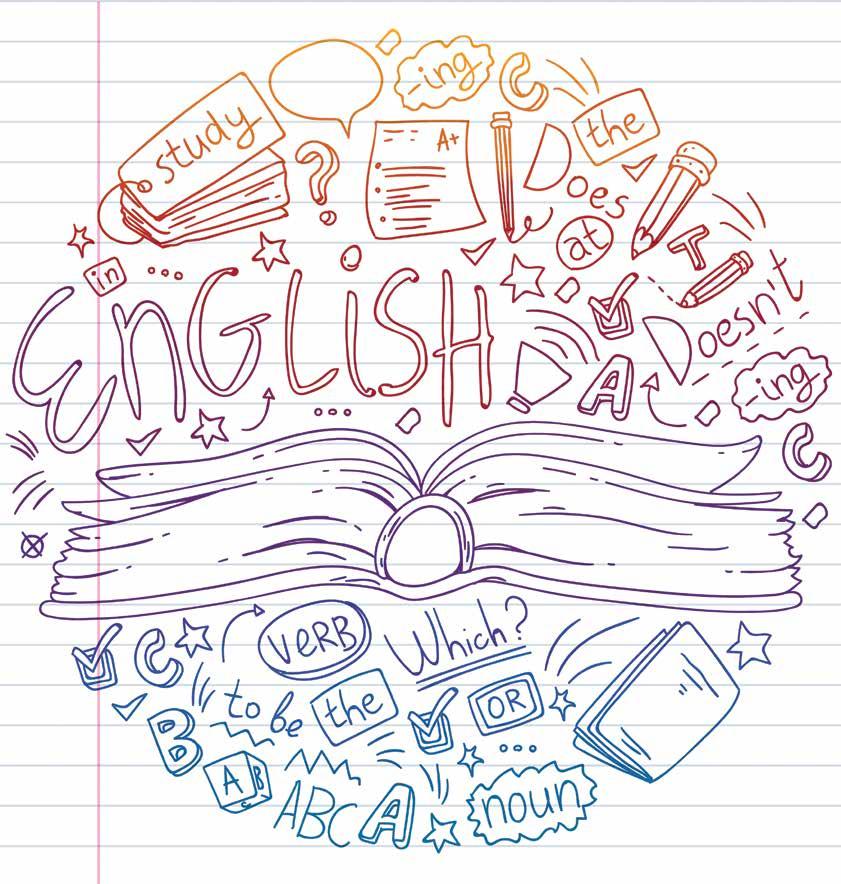 -ing
C
study
A+
the
Does
at
T
in
ENGLISH
Doesn't
A
-ing
C
VERB
Which?
C
to be
the
OR
B
A B C
ABC
A
noun